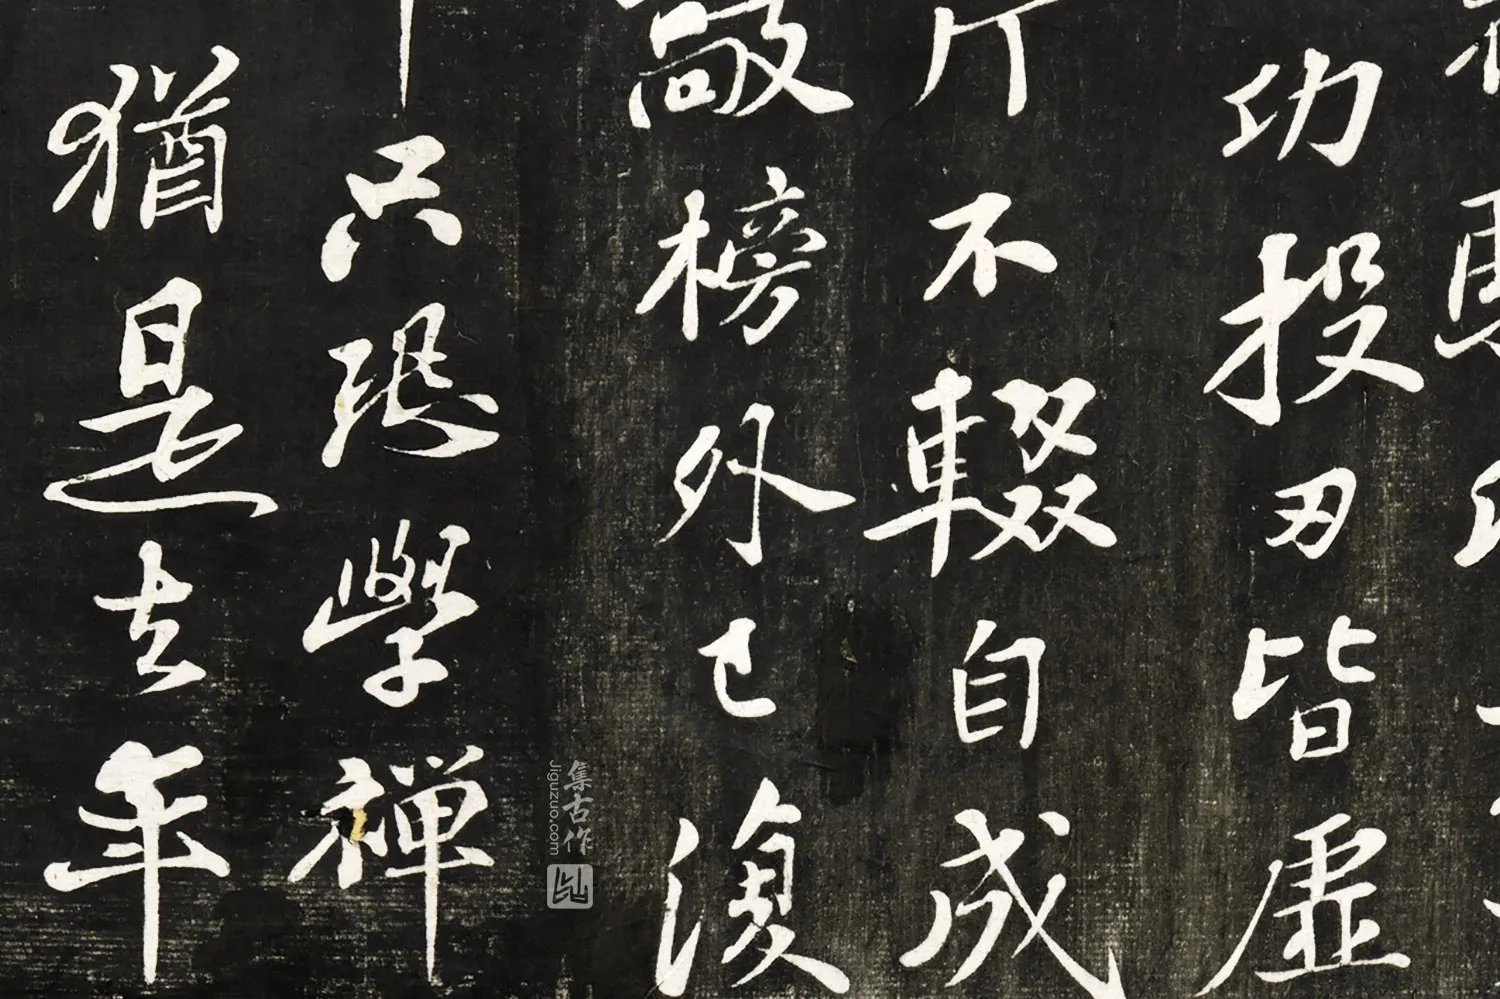 功投刃皆虛
斤不輟自成
敲榜外已復
只恐學禪
猶是去年
集古作
jiguzuo.com